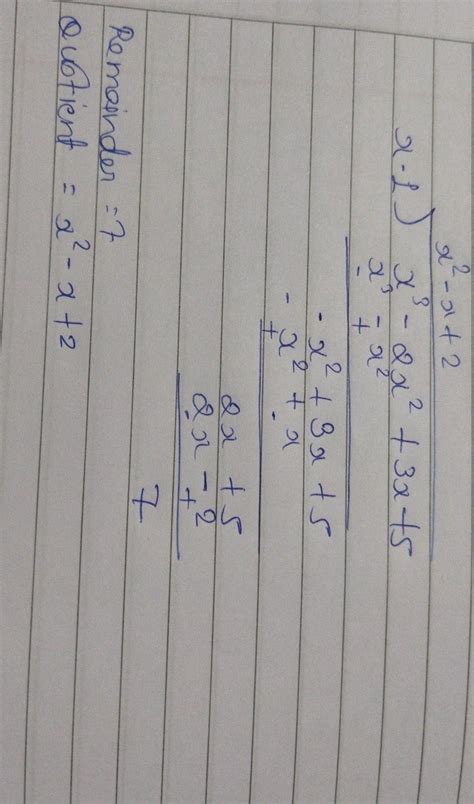 x² - x + 2
x - 1 ) x³ - 2x² + 3x + 5
x³ - x²
- +
- x² + 3x + 5
- x² + x
+ -
2x + 5
2x - 2
- +
7
Remainder = 7
Quotient = x² - x + 2